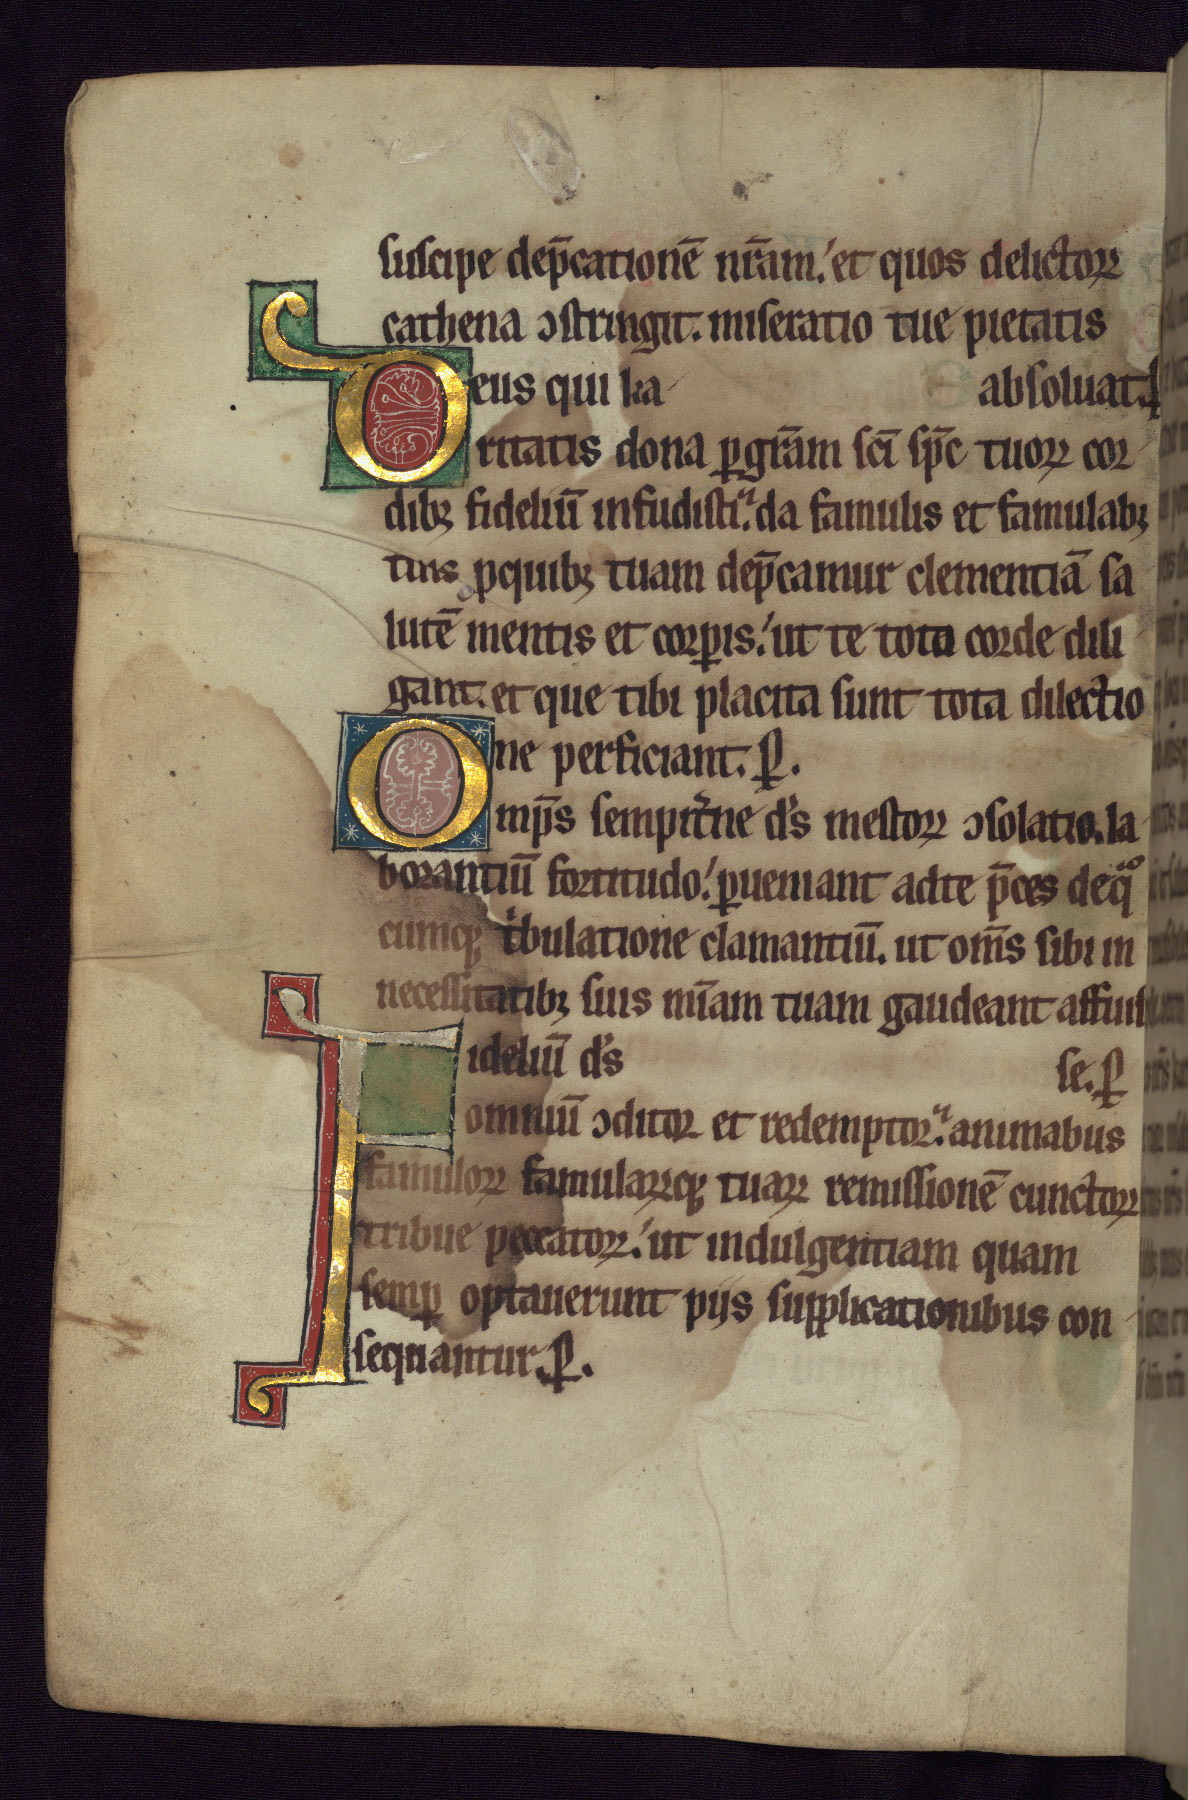 suscipe dep̄cationē nr̄am. et quos delictoꝝ
cathena ɔstringit. miseratio tue pietatis
Deus qui ka absoluat. ꝑ
ritatis dona ꝑ gr̄am sc̄i sp̄c tuoꝝ cor
dibꝫ fideliū infudisti. da famulis et famulabꝫ
tuis ꝓ quibꝫ tuam dep̄camur clementiā sa
lutē mentis et corꝑis. ut te tota corde dili
gant. et que tibi placita sunt tota dilectio
ne perficiant. ꝑ.
Omp̄s sempit̾ne d̾s mestoꝝ ɔsolatio. la
borantiū fortitudo. ꝑueniant ad te p̄ces de qͦ
cumqꝫ tͥbulatione clamantiū. ut om̄s sibi in
necessitatibꝫ suis mīam tuam gaudeant affuis
Fideliū d̾s se. ꝑ
omniū ɔditor et redemptor. animabus
famuloꝝ famulaꝝqꝫ tuaꝝ remissionē cunctoꝝ
tribue peccatoꝝ. ut indulgentiam quam
semꝑ optauerunt pijs supplicationibus con
sequantur. ꝑ.